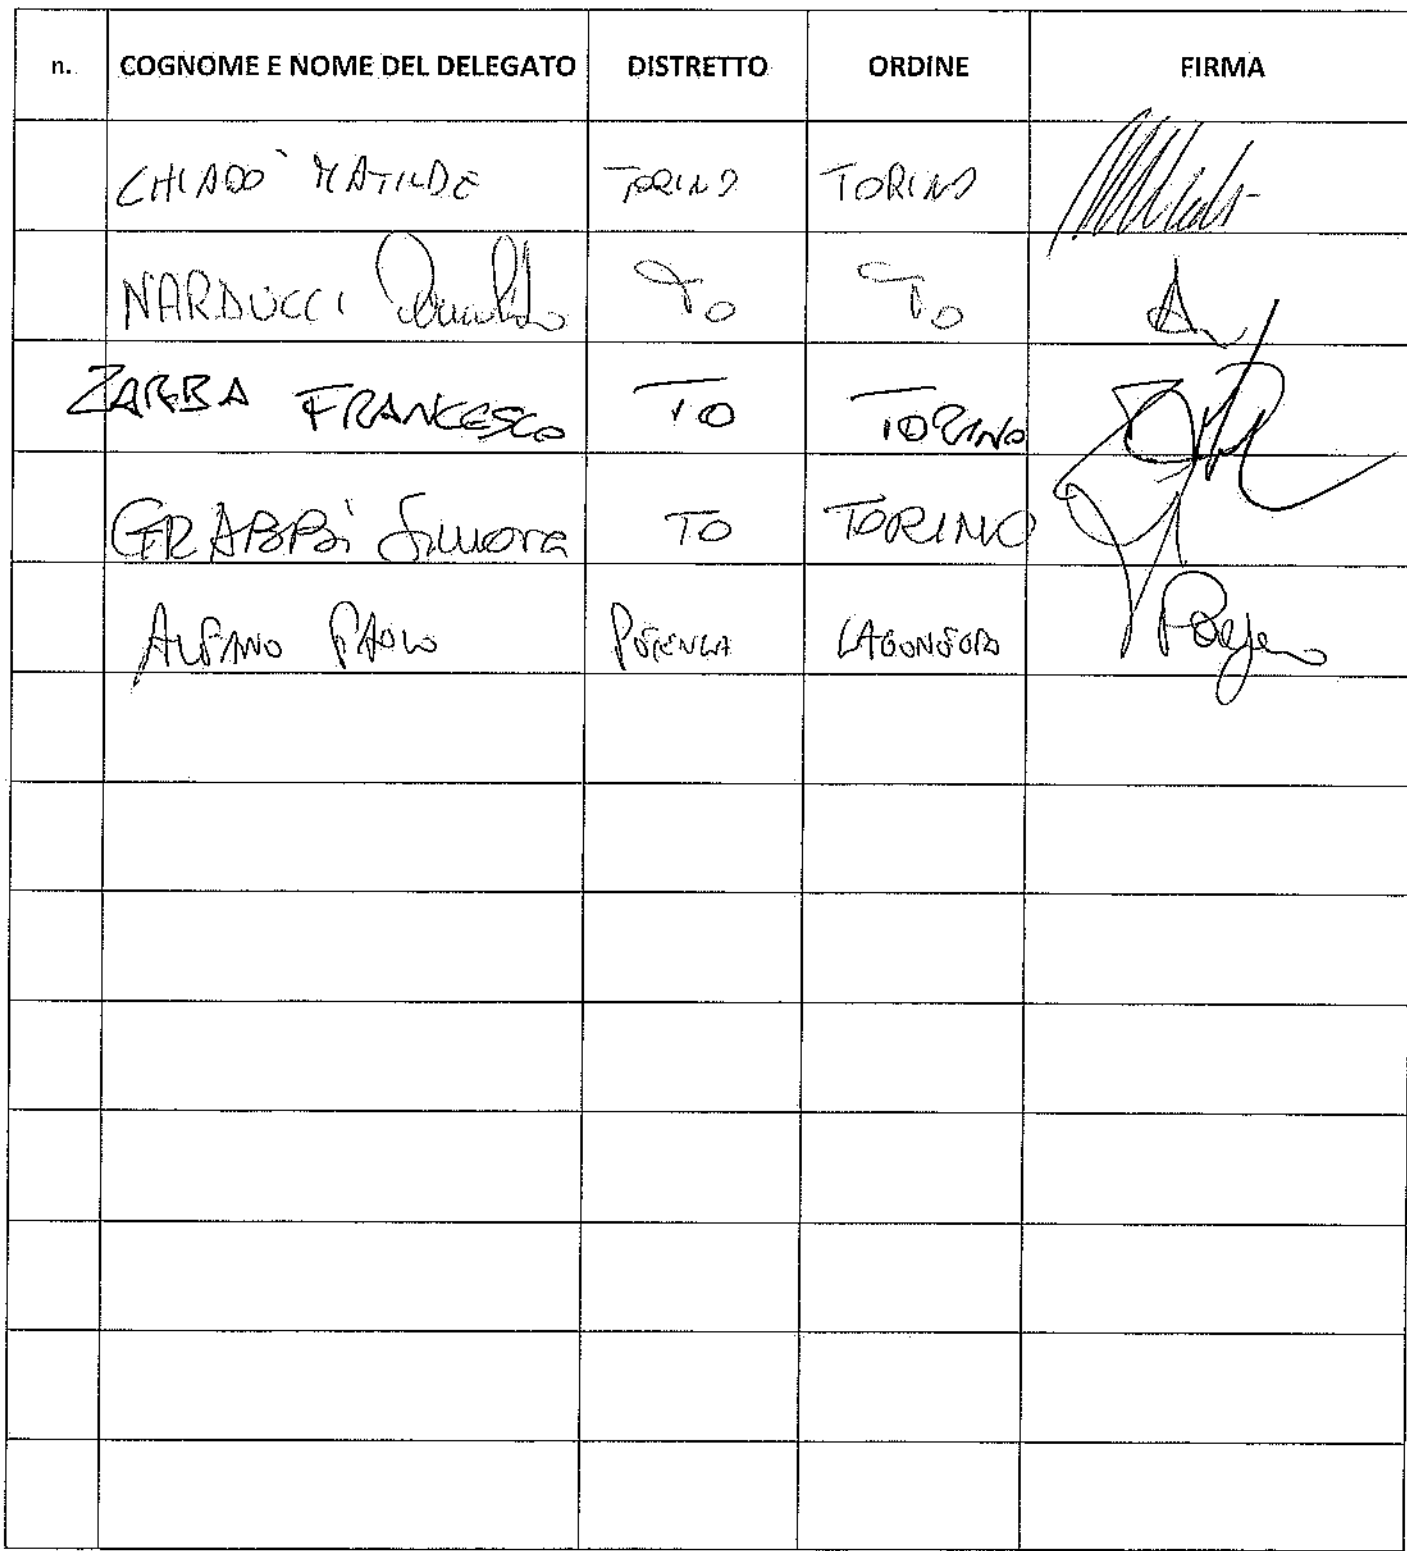 n. COGNOME E NOME DEL DELEGATO DISTRETTO ORDINE FIRMA
CHIADO' MATILDE TORINO TORINO
NARDUCCI To To
ZARBA FRANCESCO TO TORINO
GRABBI Simona TO TORINO
ALFANO PAOLO POTENZA LAGONEGRO